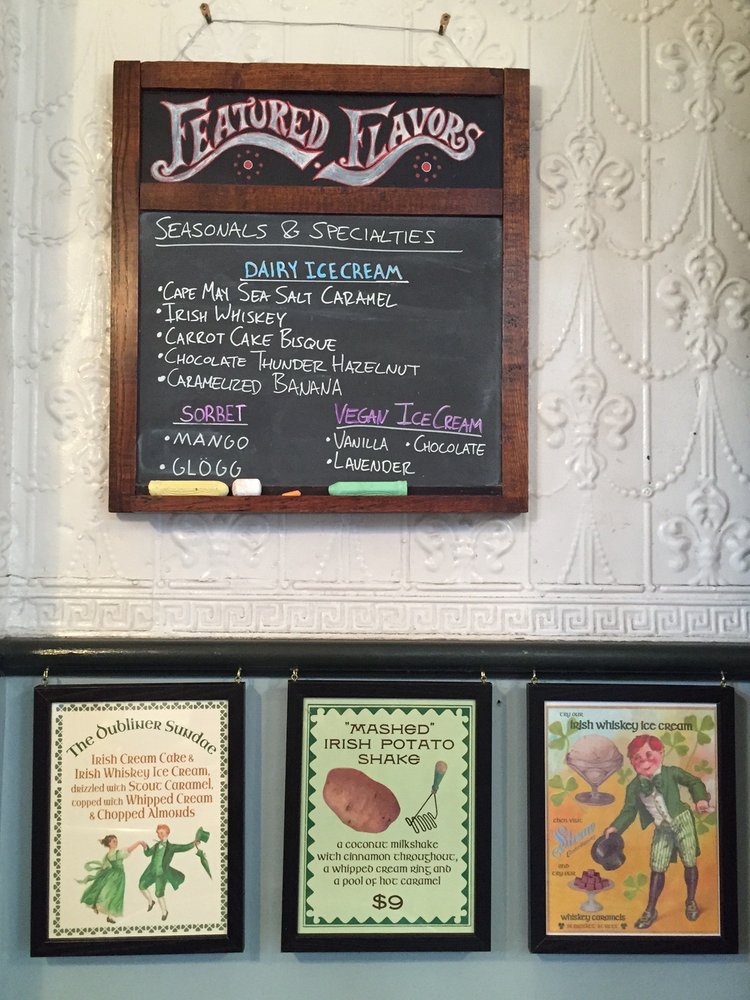 FEATURED FLAVORS
SEASONALS & SPECIALTIES
DAIRY ICE CREAM
•CAPE MAY SEA SALT CARAMEL
•IRISH WHISKEY
•CARROT CAKE BISQUE
•CHOCOLATE THUNDER HAZELNUT
•CARAMELIZED BANANA
SORBET
•MANGO
•GLÖGG
VEGAN ICE CREAM
•VANILLA •CHOCOLATE
•LAVENDER
The Dubliner Sundae
Irish Cream Cake &
Irish Whiskey Ice Cream,
drizzled with Stout Caramel,
topped with Whipped Cream
& Chopped Almonds
"MASHED"
IRISH POTATO
SHAKE
a coconut milkshake
with cinnamon throughout,
a whipped cream ring and
a pool of hot caramel
$9
try our
Irish whiskey ice cream
then visit
Shane
and
try our
whiskey caramels